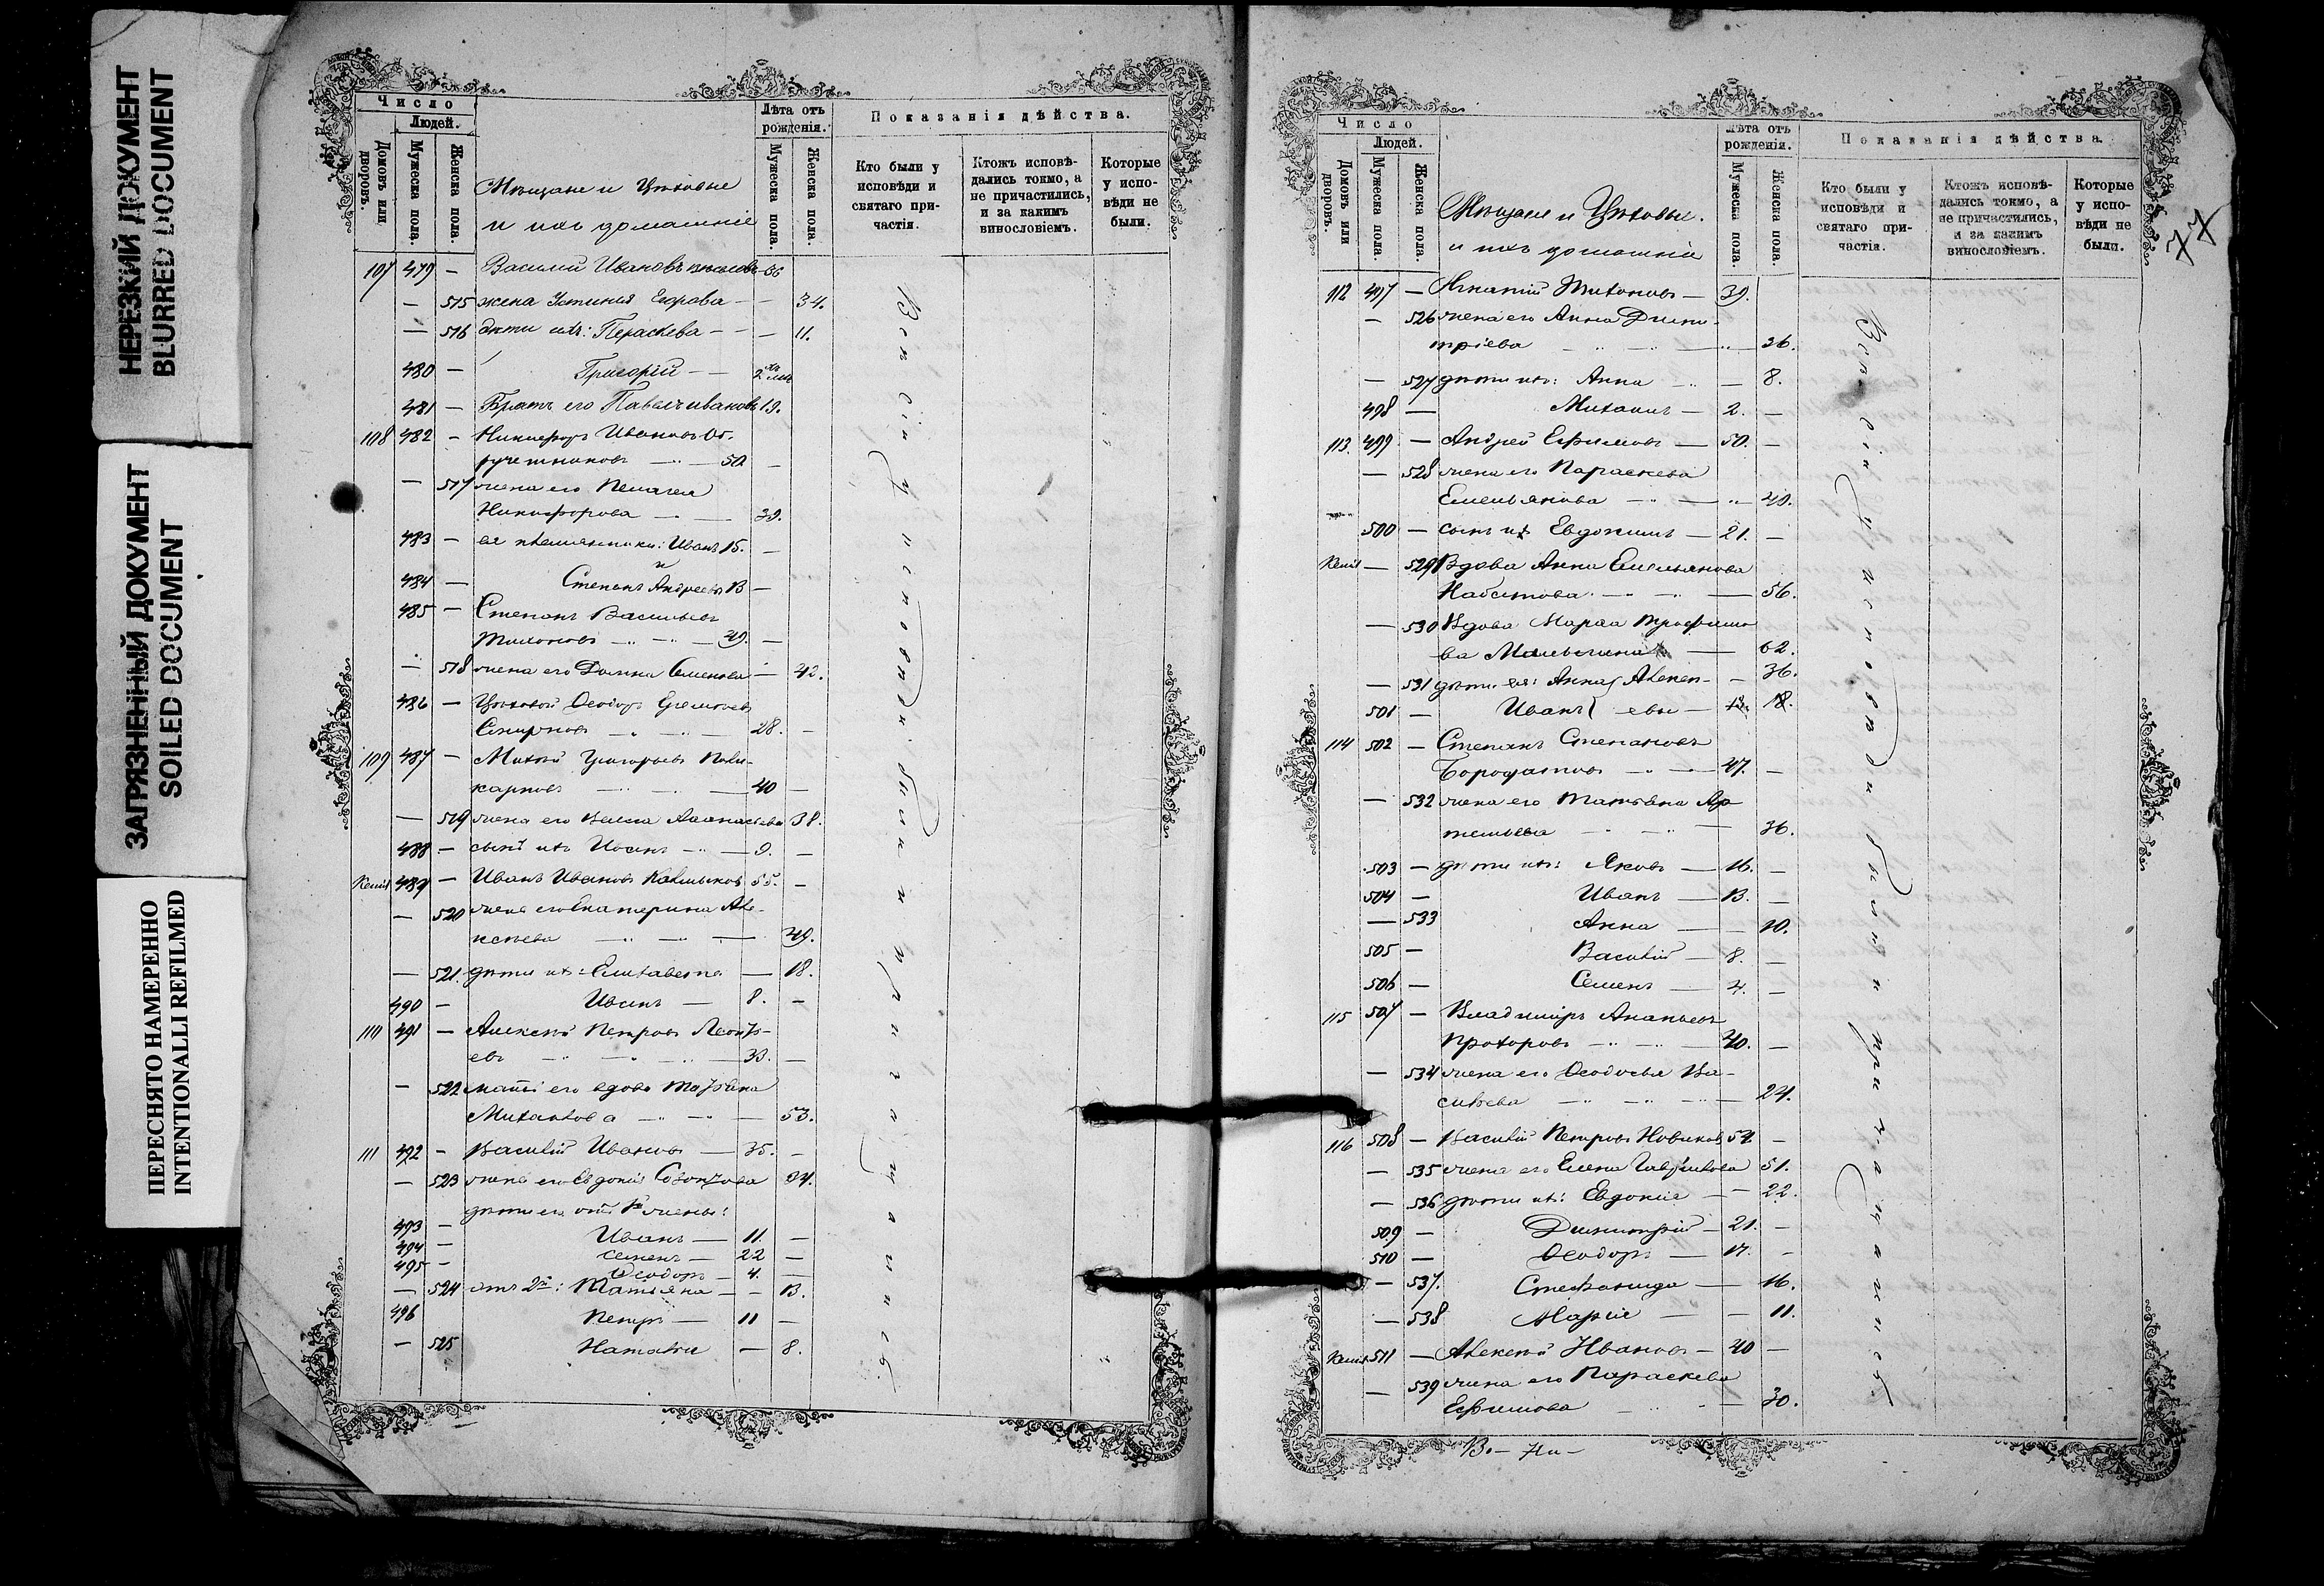 НЕРЕЗКИЙ ДОКУМЕНТ
BLURRED DOCUMENT
ЗАГРЯЗНЕННЫЙ ДОКУМЕНТ
SOILED DOCUMENT
ПЕРЕСНЯТО НАМЕРЕННО
INTENTIONALLI REFILMED
Число
Людей.
Домовъ или дворовъ.
Мужеска пола.
Женска пола.
Мѣщане и Цѣховые
и ихъ домашніе
Лѣта отъ рожденія.
Мужеска пола.
Женска пола.
Показанія дѣйства.
Кто были у исповѣди и святаго причастія.
Ктожъ исповѣдались токмо, а не причастились, и за какимъ винословіемъ.
Которые у исповѣди не были.
107 479 — Василий Ивановъ 36
— 515 жена Устинья Егорова — — 34.
— 516 дѣти ихъ: Параскева — — — 11.
480 — Григорій — — 2
481 — Братъ его Павелъ Ивановъ 19.
108 482 — Никифоръ Ивановъ Об-
ручниковъ — 50 —
— 517 жена его Пелагея
Никифорова — — 39.
483 — ея племянники: Иванъ 15. —
и
484 — Степанъ Андреевы 13 —
485 — Степанъ Васильевъ
Тихоновъ — — 49. —
— 518 жена его Домна Семенова — 42.
486 — Цѣховой Ѳеодоръ
Смирновъ — — 28. —
109 487 — Михаилъ Григорьевъ Поли-
карповъ — — 40 —
— 519 жена его Аѳанасьева 38.
488 — сынъ ихъ Иоанъ — — 9. —
489 — Иванъ Ивановъ Калмыковъ 55. —
— 520 жена его Екатерина Але-
ксѣева — — — 49.
— 521. дѣти ихъ: Елизавета — 18.
490 — Иванъ — 8. —
110 491 — Алексѣй Петровъ Леонтьевъ
— — — 33. —
— 522 мать его вдова Татьяна
Михайлова — — — 53.
111 492 — Василій Ивановъ — 35. —
— 523 жена его Евдокія 34.
дѣти его отъ 1й жены:
493 — Иванъ — 11. —
494 — Семенъ — 22 —
495 — Ѳеодоръ — 4. —
— 524 отъ 2й: Татьяна — — 13.
496 Петръ — 11 —
— 525 Наталія — 8.
Всѣ сіи у исповѣди были и причащались
Число
Людей.
Домовъ или дворовъ.
Мужеска пола.
Женска пола.
Мѣщане и Цѣховые.
и ихъ домашніе
Лѣта отъ рожденія.
Мужеска пола.
Женска пола.
Показанія дѣйства.
Кто были у исповѣди и святаго причастія.
Ктожъ исповѣдались токмо, а не причастились, и за какимъ винословіемъ.
Которые у исповѣди не были.
77
112 497 — Игнатій Тихоновъ — 39.
— 526 жена его Анна Дими-
тріева — — — 26.
— 527 дѣти ихъ: Анна — — 8.
498 — Михаилъ — 2. —
113. 499 — Андрей Ефимовъ — 50. —
— 528 жена его Параскева
Емельянова — — 49.
500 — сынъ ихъ Евдокимъ — 21. —
— 529 Вдова Анна Емельянова
— — 56.
— 530 Вдова Марѳа Трофимо-
ва — 62.
— 531 дѣти ея: Анна Алексѣ- — 36.
501 — Иванъ евы — 18.
114 502 — Степанъ Степановъ
— — 47. —
— 532 жена его Татьяна Ар-
темьева — — 36.
503 — дѣти ихъ: Яковъ — 16. —
504 — Иванъ — 13. —
— 533 Анна — — 10.
505 — Василій — 8. —
506 — Семенъ — 4. —
115 507 — Владиміръ Ананьевъ
Прохоровъ — — 40. —
— 534 жена его Ѳеодосья Ва-
сильева — — — 24.
116 508 — Василій Петровъ Новиковъ 52 —
— 535 жена его Елена Гаврилова 51.
— 536 дѣти ихъ: Евдокія — — 22.
509 — Димитрій — 21. —
510 — Ѳеодоръ — 17. —
— 537. Стефанида — 16.
— 538 Марія — — 11.
511 — Алексѣй Ивановъ — 40 —
— 539 жена его Параскева
Ефимова — 30.
Всѣ сіи у исповѣди были и причащались